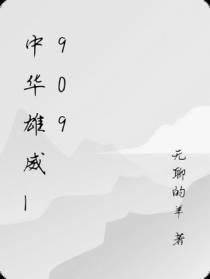 中华雄威1
909
无聊的羊 著